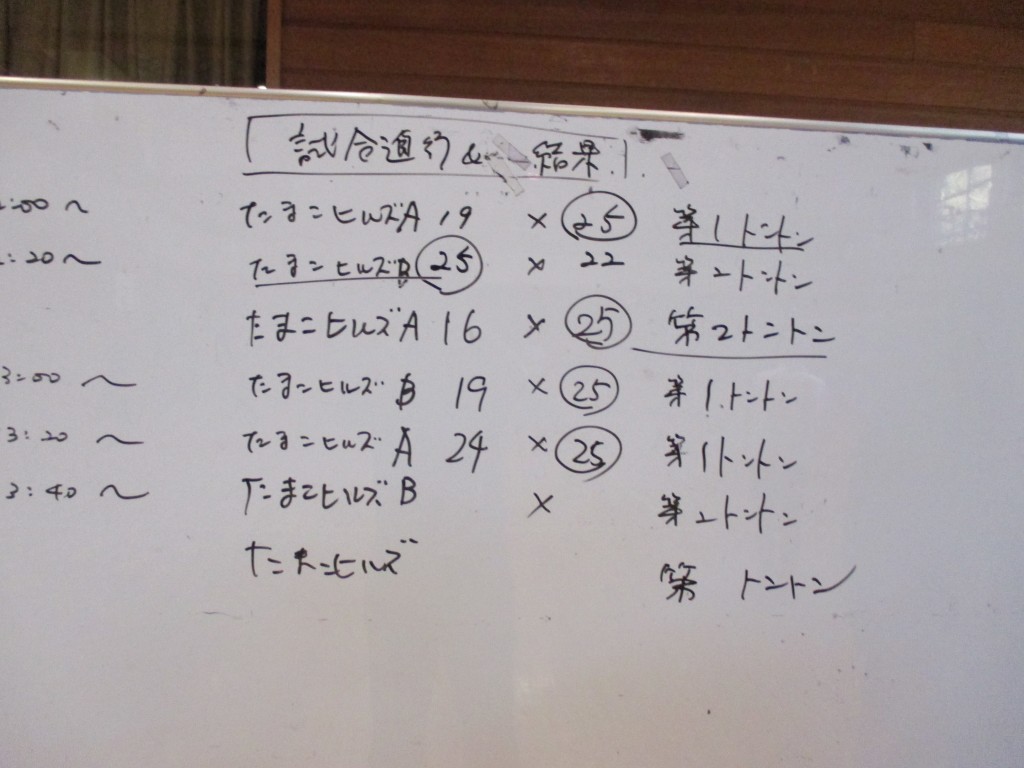 試合進行&結果
:00〜 たまこヒルズA 19 × 25 第1トントン
:20〜 たまこヒルズB 25 × 22 第2トントン
たまこヒルズA 16 × 25 第2トントン
3:00 〜 たまこヒルズB 19 × 25 第1トントン
3:20 〜 たまこヒルズA 24 × 25 第1トントン
3:40 〜 たまこヒルズB × 第2トントン
たまこヒルズ 第 トントン